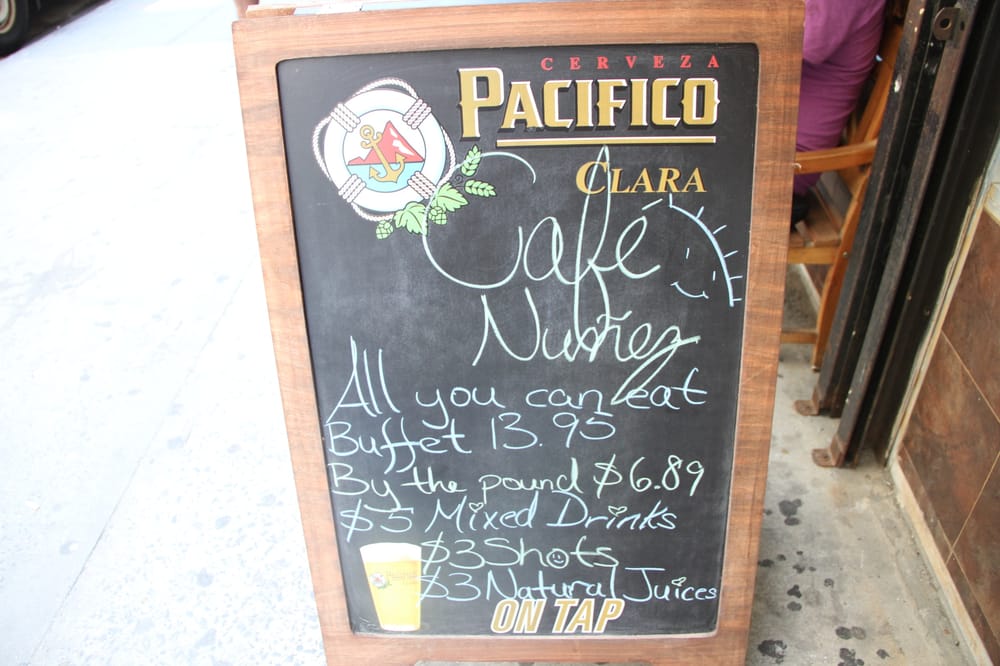 CERVEZA
PACIFICO
CLARA
Café
Nuñez
All you can eat
Buffet 13.95
By the pound $6.89
$5 Mixed Drinks
$3 Shots
$3 Natural Juices
ON TAP